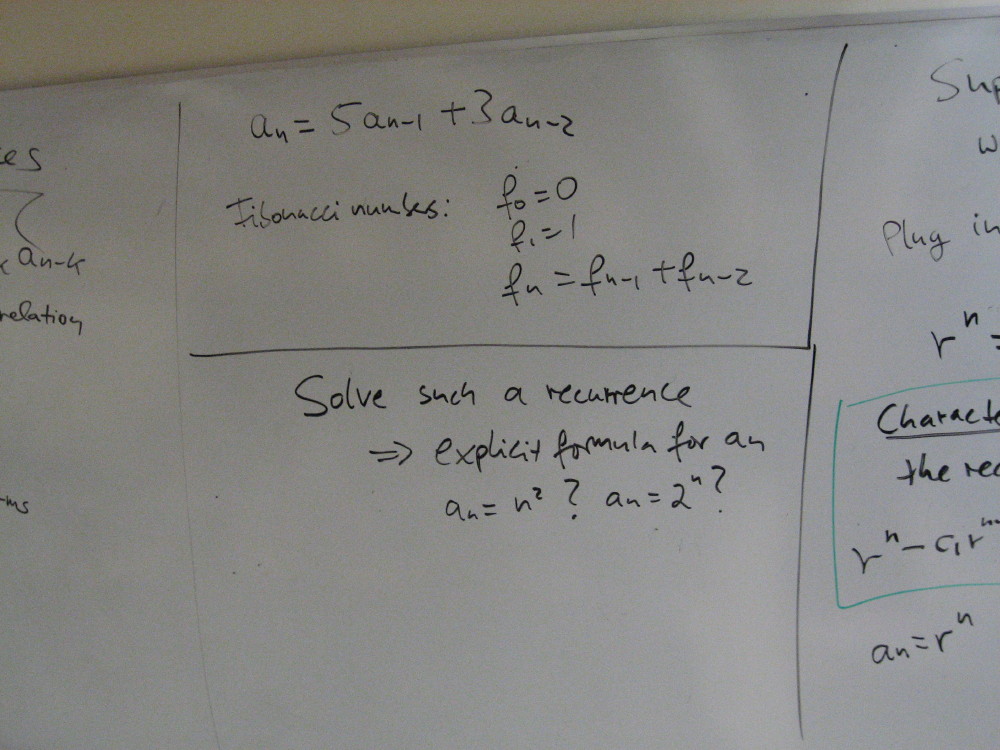 a_{n-k}
relation
a_n = 5a_{n-1} + 3a_{n-2}
Fibonacci numbers: f_0 = 0
f_1 = 1
f_n = f_{n-1} + f_{n-2}
Solve such a recurrence
⇒ explicit formula for a_n
a_n = n^2 ? a_n = 2^n ?
Plug in
r^n =
the
r^n - c_1 r
a_n = r^n